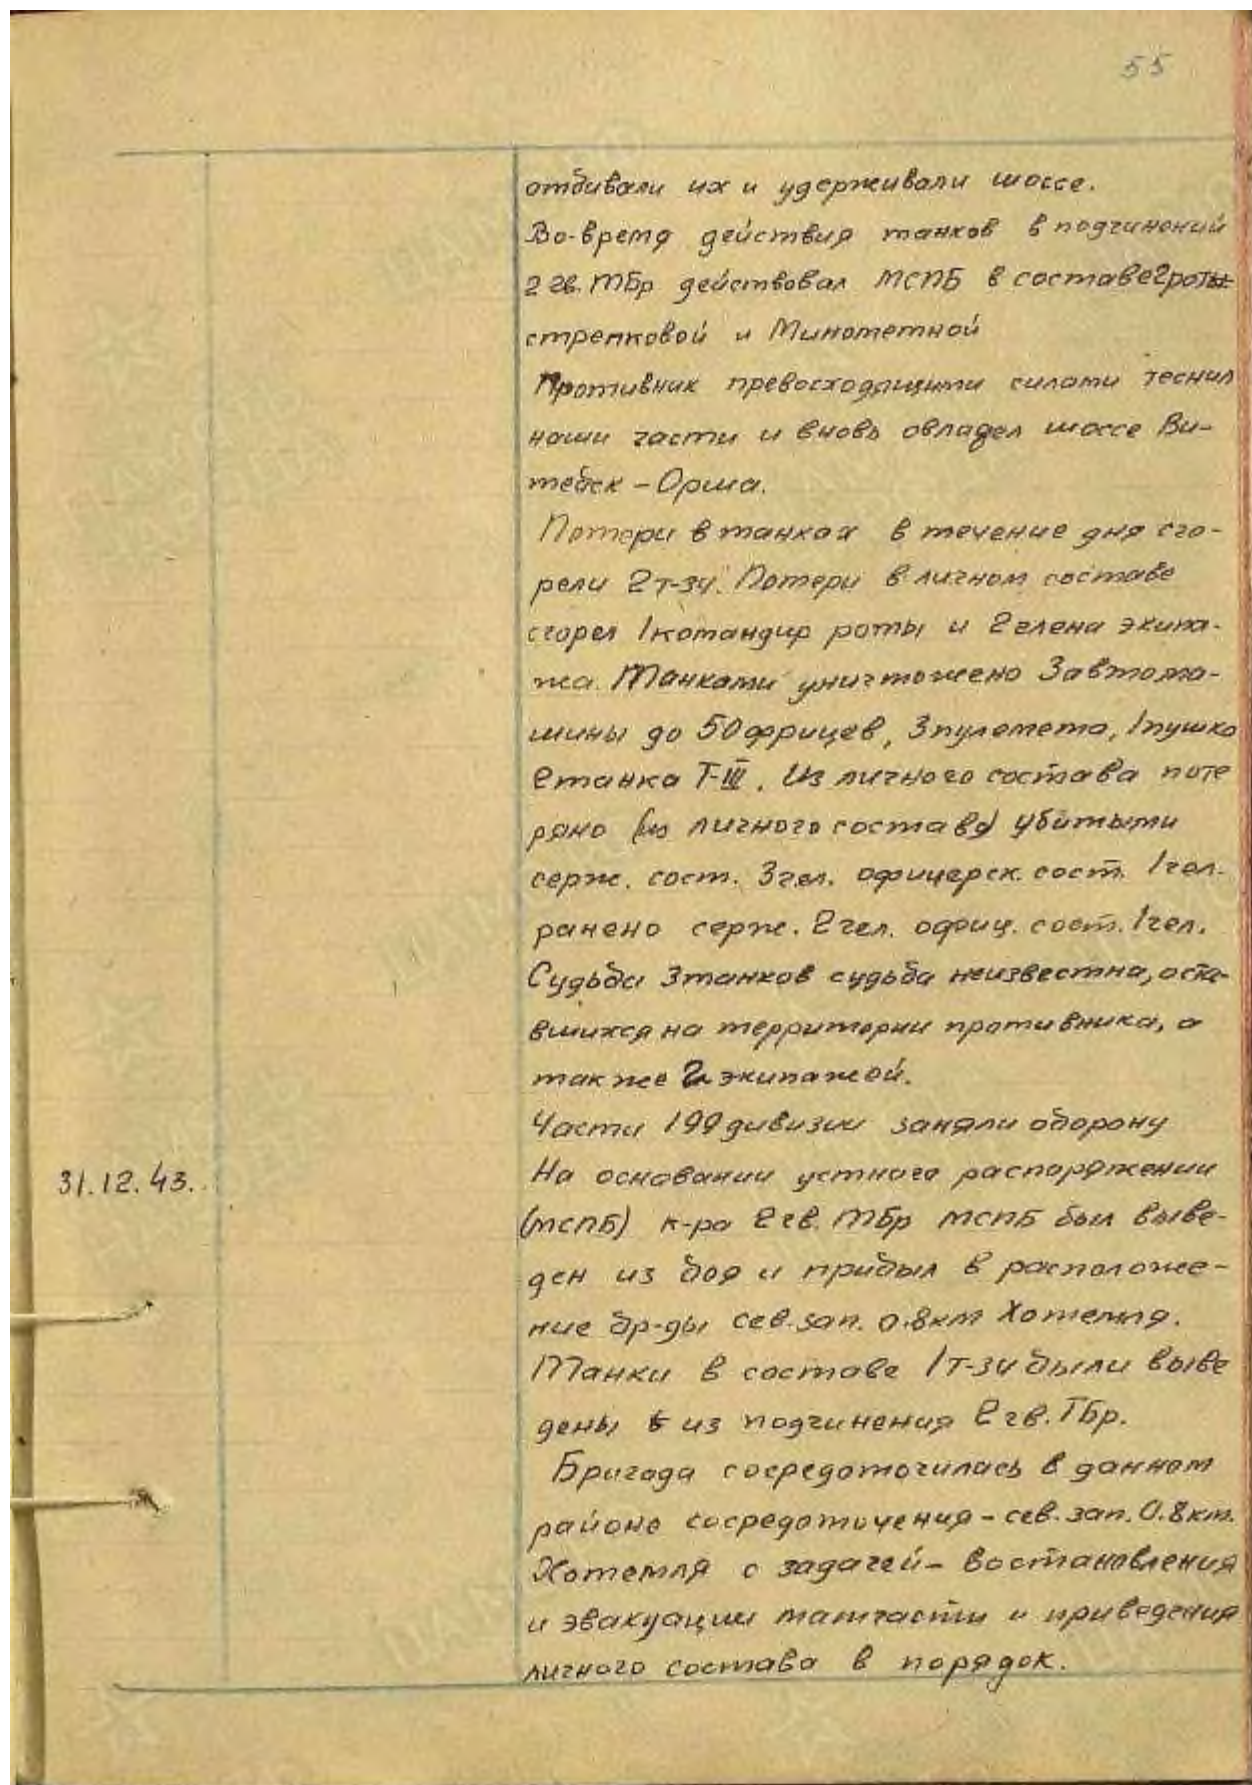 55
отбивали их и удерживали шоссе.
Во-время действия танков в подчинений
2 гв. ТБр действовал МСПБ в составе 2 роты
стрелковой и Минометной
Противник превосходящими силами теснил
наши части и вновь овладел шоссе Ви-
тебск – Орша.
Потери в танках в течение дня сго-
рели 2 т-34. Потери в личном составе
сгорел 1 командир роты и 2 члена экипа-
жа. Танками уничтожено 3 автома-
шины до 50 фрицев, 3 пулемета, 1 пушка
2 танка Т-III. Из личного состава поте
ряно (из личного состава) убитыми
серж. сост. 3 чел. офицерск. сост. 1 чел.
ранено серж. 2 чел. офиц. сост. 1 чел.
Судьба 3 танков судьба неизвестна, оста-
вшихся на территории противника, а
также 2 экипажей.
Части 199 дивизии заняли оборону
31.12.43. На основании устного распоряжении
(МСПБ) к-ра 2 гв. ТБр МСПБ был выве-
ден из боя и прибыл в расположе-
ние бр-ды сев. зап. 0.8 км Хотемля.
Танки в составе 1 т-34 были выве
дены из подчинения 2 гв. ТБр.
Бригада сосредоточилась в данном
районе сосредоточения – сев. зап. 0.8 км.
Хотемля с задачей – востановления
и эвакуации матчасти и приведения
личного состава в порядок.